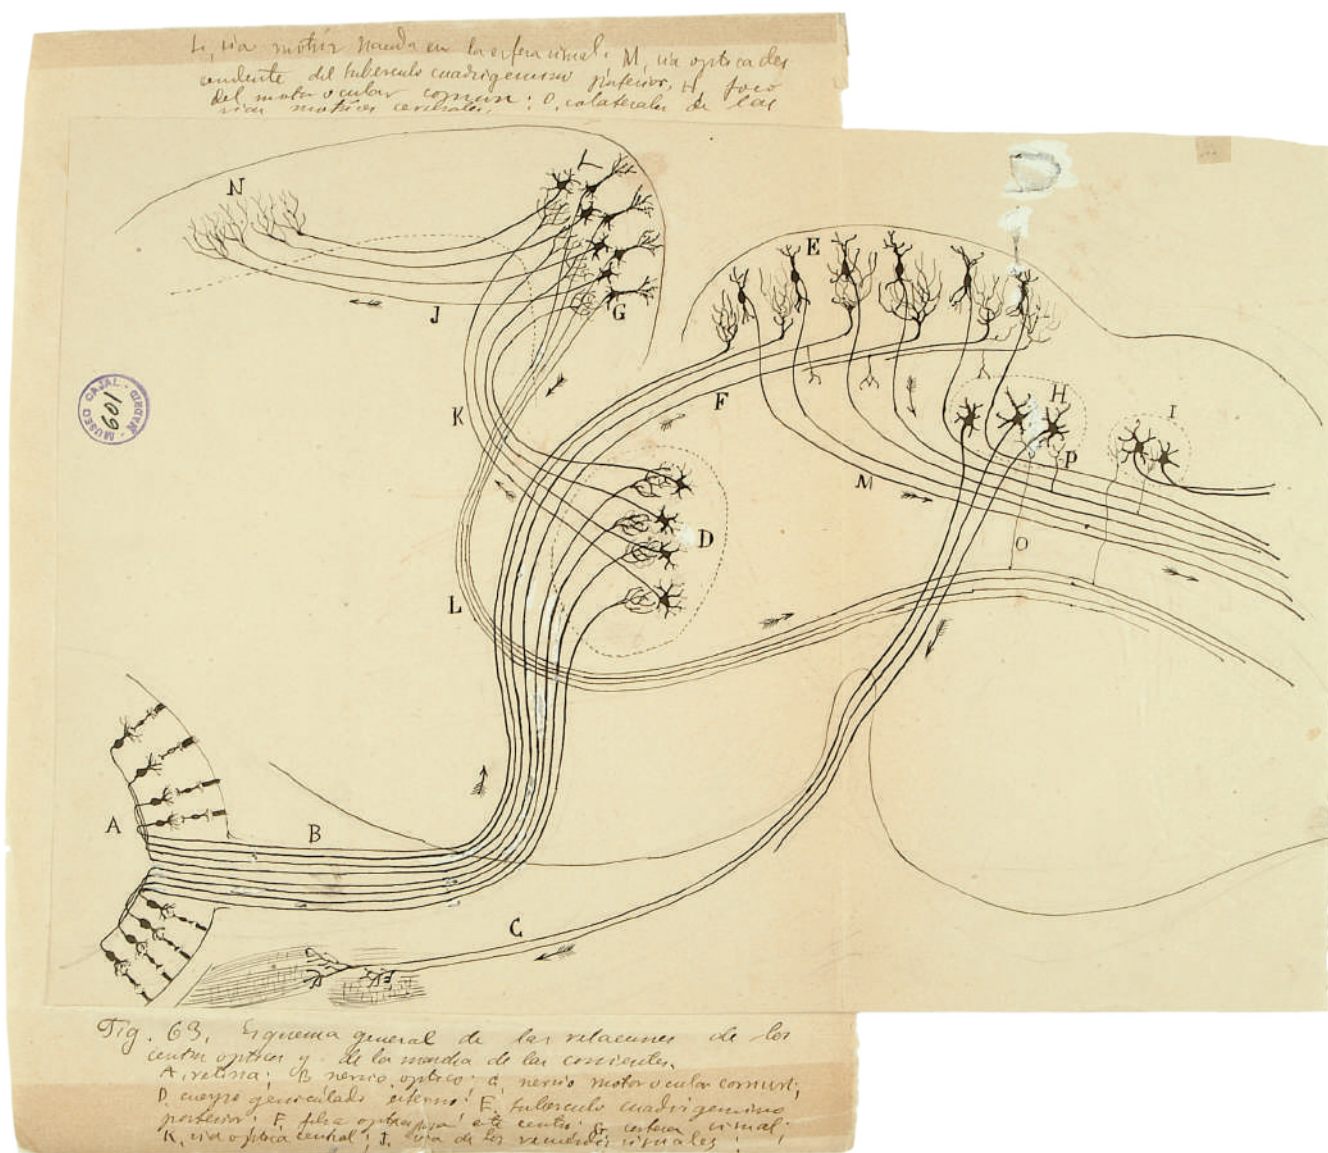 L, via motriz nacida en la esfera visual; M, via optica des
cendente del tuberculo cuadrigemino posterior; H, foco
del motor ocular comun; O, colaterales de las
vias motrices cerebrales;
N
L
E
G
J
H
I
F
K
P
M
D
O
L
A
B
C
MUSEO CAJAL · MADRID ·
109
Fig. 63. Esquema general de las relaciones de los
centros opticos y de la marcha de las corrientes.
A, retina; B nervio optico; C, nervio motor ocular comun;
D, cuerpo geniculado externo; E, tuberculo cuadrigemino
posterior; F fibra optica para este centro; G corteza visual;
K, via optica central; J, via de los recuerdos visuales;